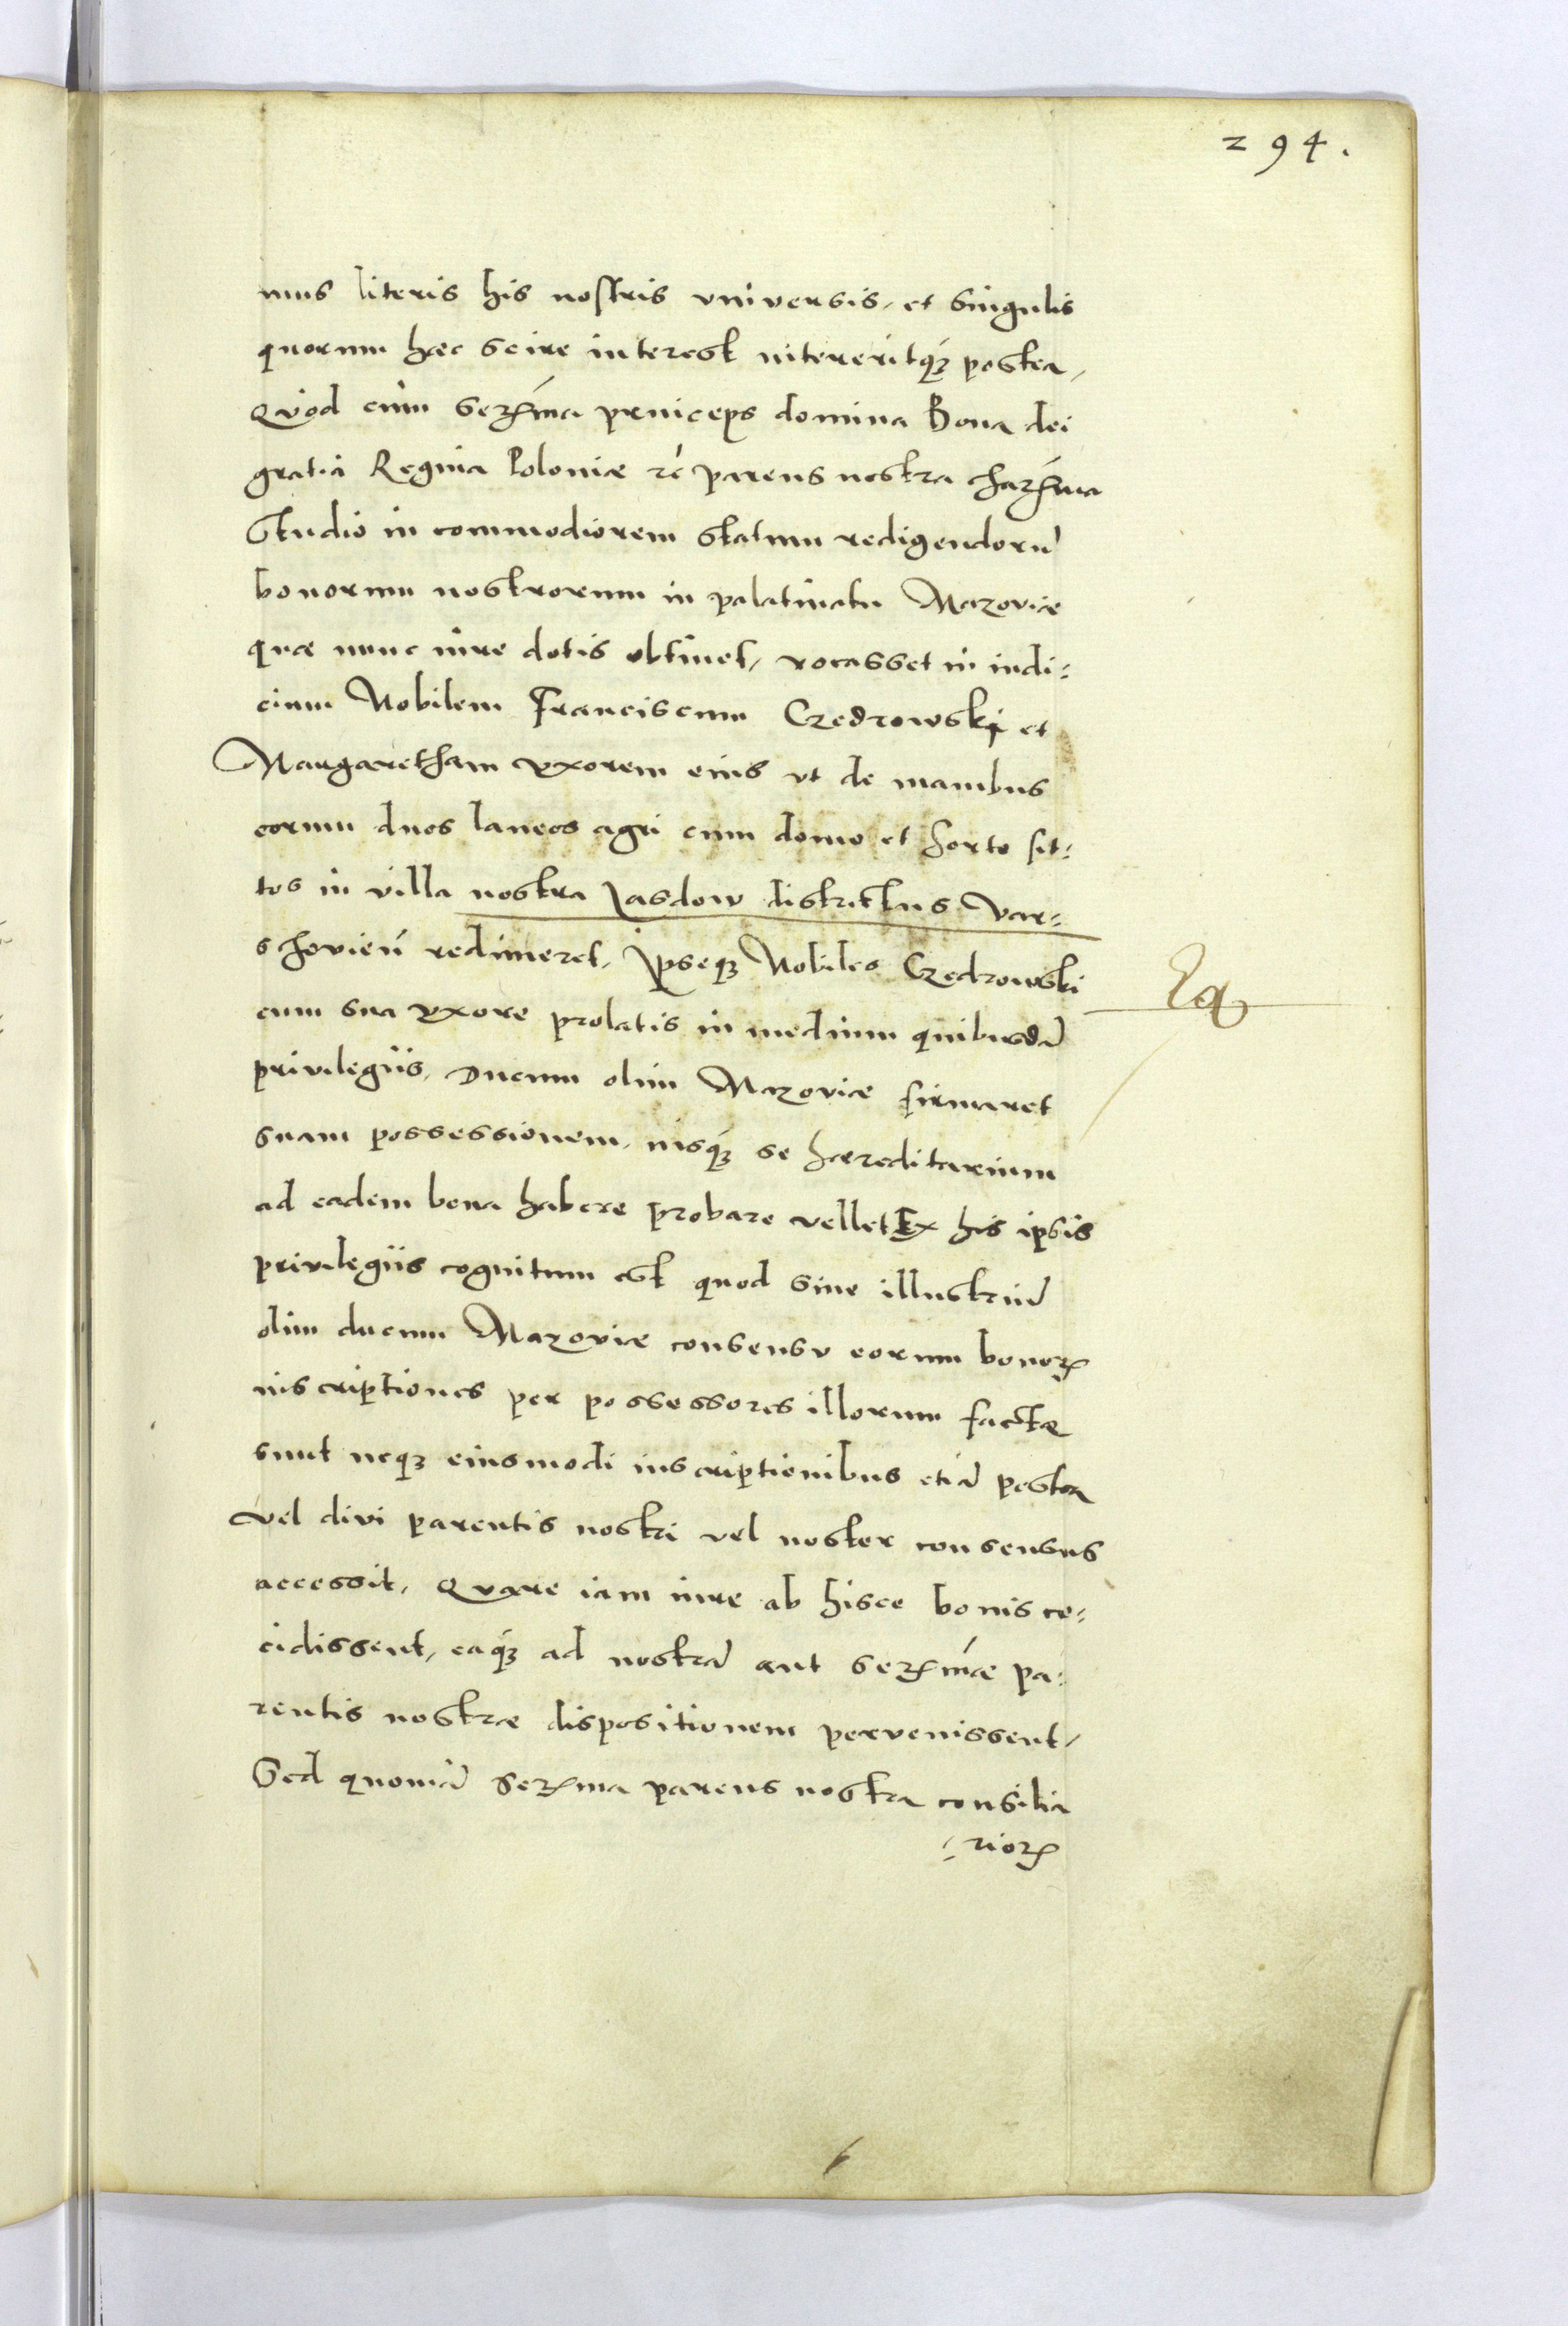 294.
mus literis his nostris universis, et singulis
quorum hæc scire interest intereritq́ꝫ postea,
Quòd cùm Serꝫḿa princeps domina Bona dei
gratia Regina Poloniæ ꝛc̃ parens nostra charꝫḿa
Studio in commodiorem statum redigendorũ
bonorum nostrorum in palatinatu Mazoviæ
quæ nunc iure dotis obtinet, vocasset in iudi:
cium Nobilem Franciscum Czedrowski et
Margaretham uxorem eius ut de manibus
eorum duos laneos agri cum domo et horto sit:
tos in villa nostra Jasdow districtus Var:
schovieñ redimeret, Ipseqꝫ Nobiles Czedrowski
cum sua uxore prolatis in medium quibusdã
privilegiis, Ducum olim Mazoviæ firmaret
suam possessionem, iusq́ꝫ se hæreditarium
ad eadem bona habere probare vellet Ex his ipsis
privilegiis cognitum est quod sine illustriũ
olim ducum Mazoviæ consensu eorum bonorꝫ
inscriptiones per possessores illorum factæ
sunt neqꝫ eiusmodi inscriptionibus etiã postea
vel divi parentis nostri vel noster consensus
accessit, Quare iam iure ab hisce bonis ce:
cidissent, eaq́ꝫ ad nostrã aut Serꝫḿæ pa:
rentis nostræ dispositionem pervenissent,
Sed quoniã Serꝫma parens nostra consilia
:riorꝫ